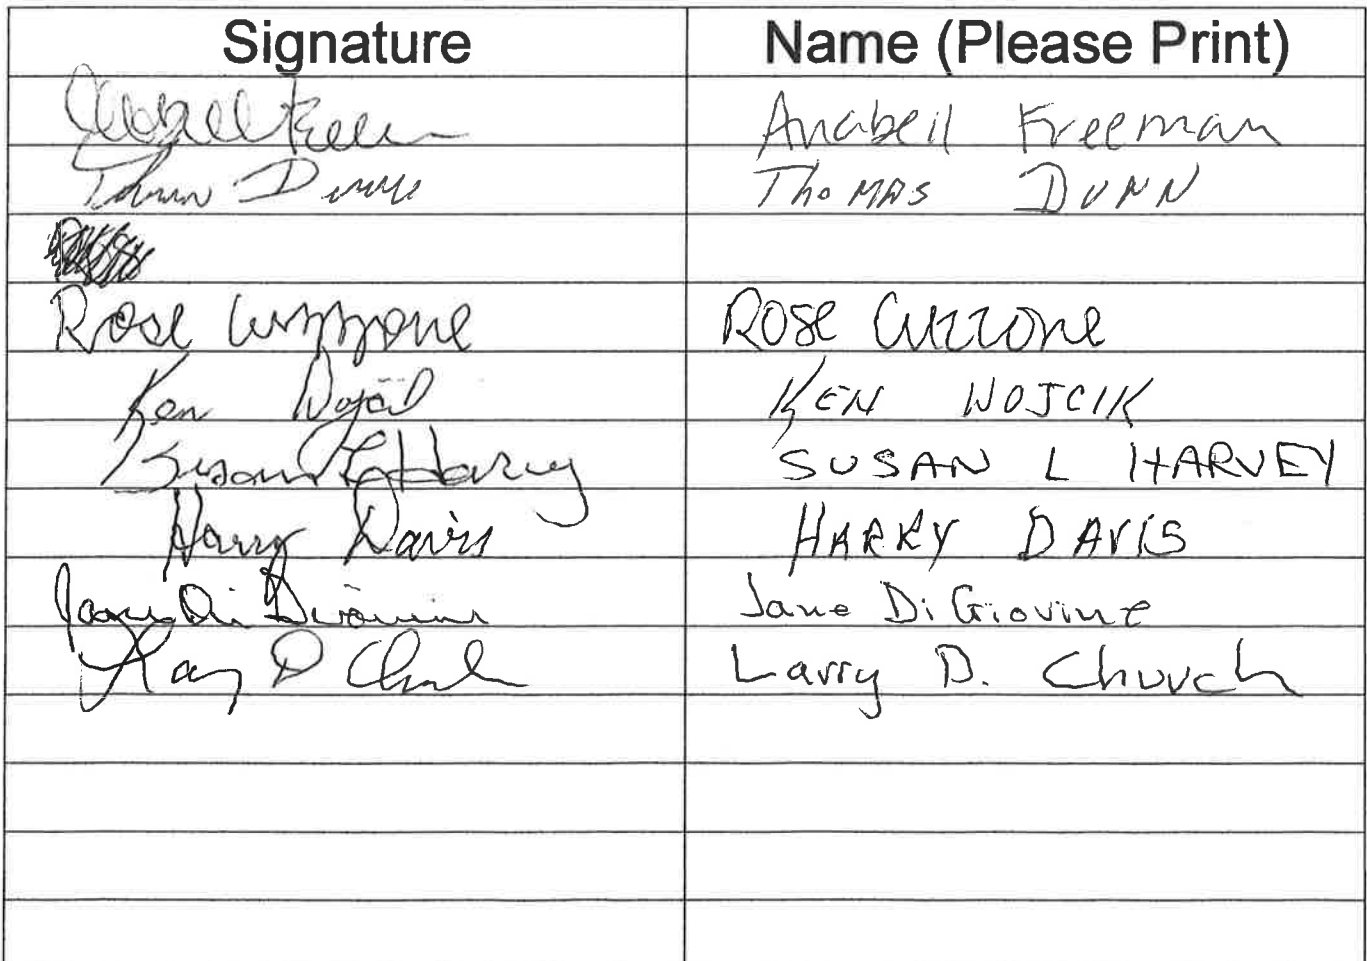 Signature Name (Please Print)
Anabell Freeman
Thomas Dunn THOMAS DUNN
Rose Cuzzone Rose Cuzzone
Ken Wojcik KEN WOJCIK
Susan L Harvey SUSAN L HARVEY
Harry Davis HARRY DAVIS
Jane Di Giovine Jane DiGiovine
Larry D Church Larry D. Church